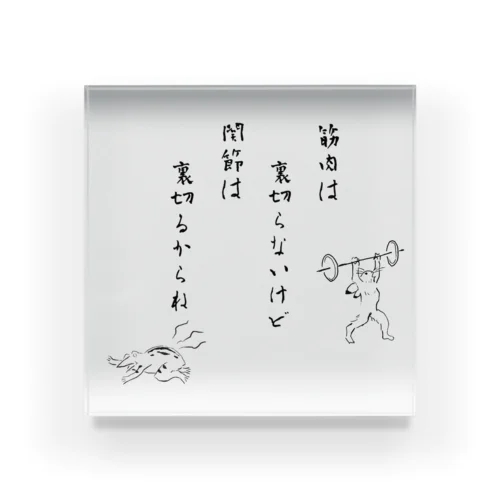 筋肉は
裏切らないけど
関節は
裏切るからね